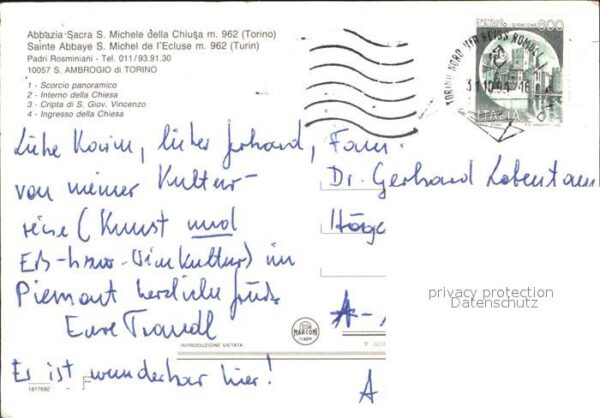 Abbazia Sacra S. Michele della Chiusa m. 962 (Torino)
Sainte Abbaye S. Michel de l'Ecluse m. 962 (Turin)
Padri Rosminiani - Tel. 011/93.91.30
10057 S. AMBROGIO di TORINO
1 - Scorcio panoramico
2 - Interno della Chiesa
3 - Cripta di S. Giov. Vincenzo
4 - Ingresso della Chiesa
CASTELLO
800
ITALIA
TORINO NORD
31.10.94 16
Liebe Karin, lieber Gerhard,
von meiner Kultur-
reise (Kunst und
Eß- bzw. Trinkkultur) im
Piemont herzliche Grüße
Eure Traudl
Es ist wunderbar hier!
Fam.
Dr. Gerhard
A-
A
MARCONI
RIPRODUZIONE VIETATA
1817692
privacy protection
Datenschutz